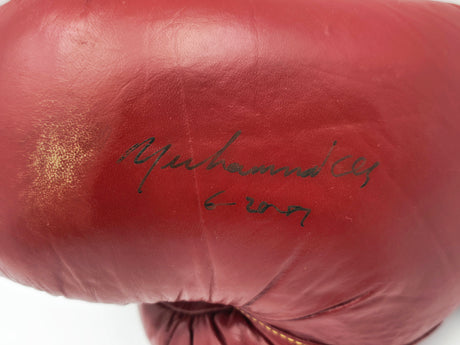 Muhammad Ali
6-20-01